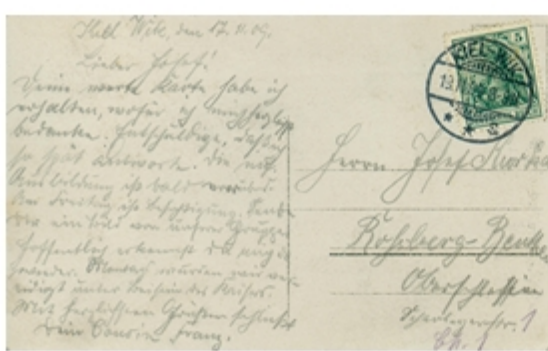 Kiel Wik, den 17.11.09.
Lieber Josef!
Deine werte Karte habe ich
erhalten, wofür ich mich herzlich
bedanke. Entschuldige, daß ich
so spät antworte. Die
Ausbildung ist bald vorüber.
Am Freitag ist Besichtigung. Sende
Dir ein Bild von unsrer Gruppe
Hoffentlich erkennst Du mich
wieder. Montag wurden wir ver-
eidigt unter Beisein des Kaisers.
Mit herzlichsten Grüßen schließt
Dein Cousin Franz.
5
KIEL-WIK
Herrn Josef
Roßberg-Beuthen
Oberschlesien